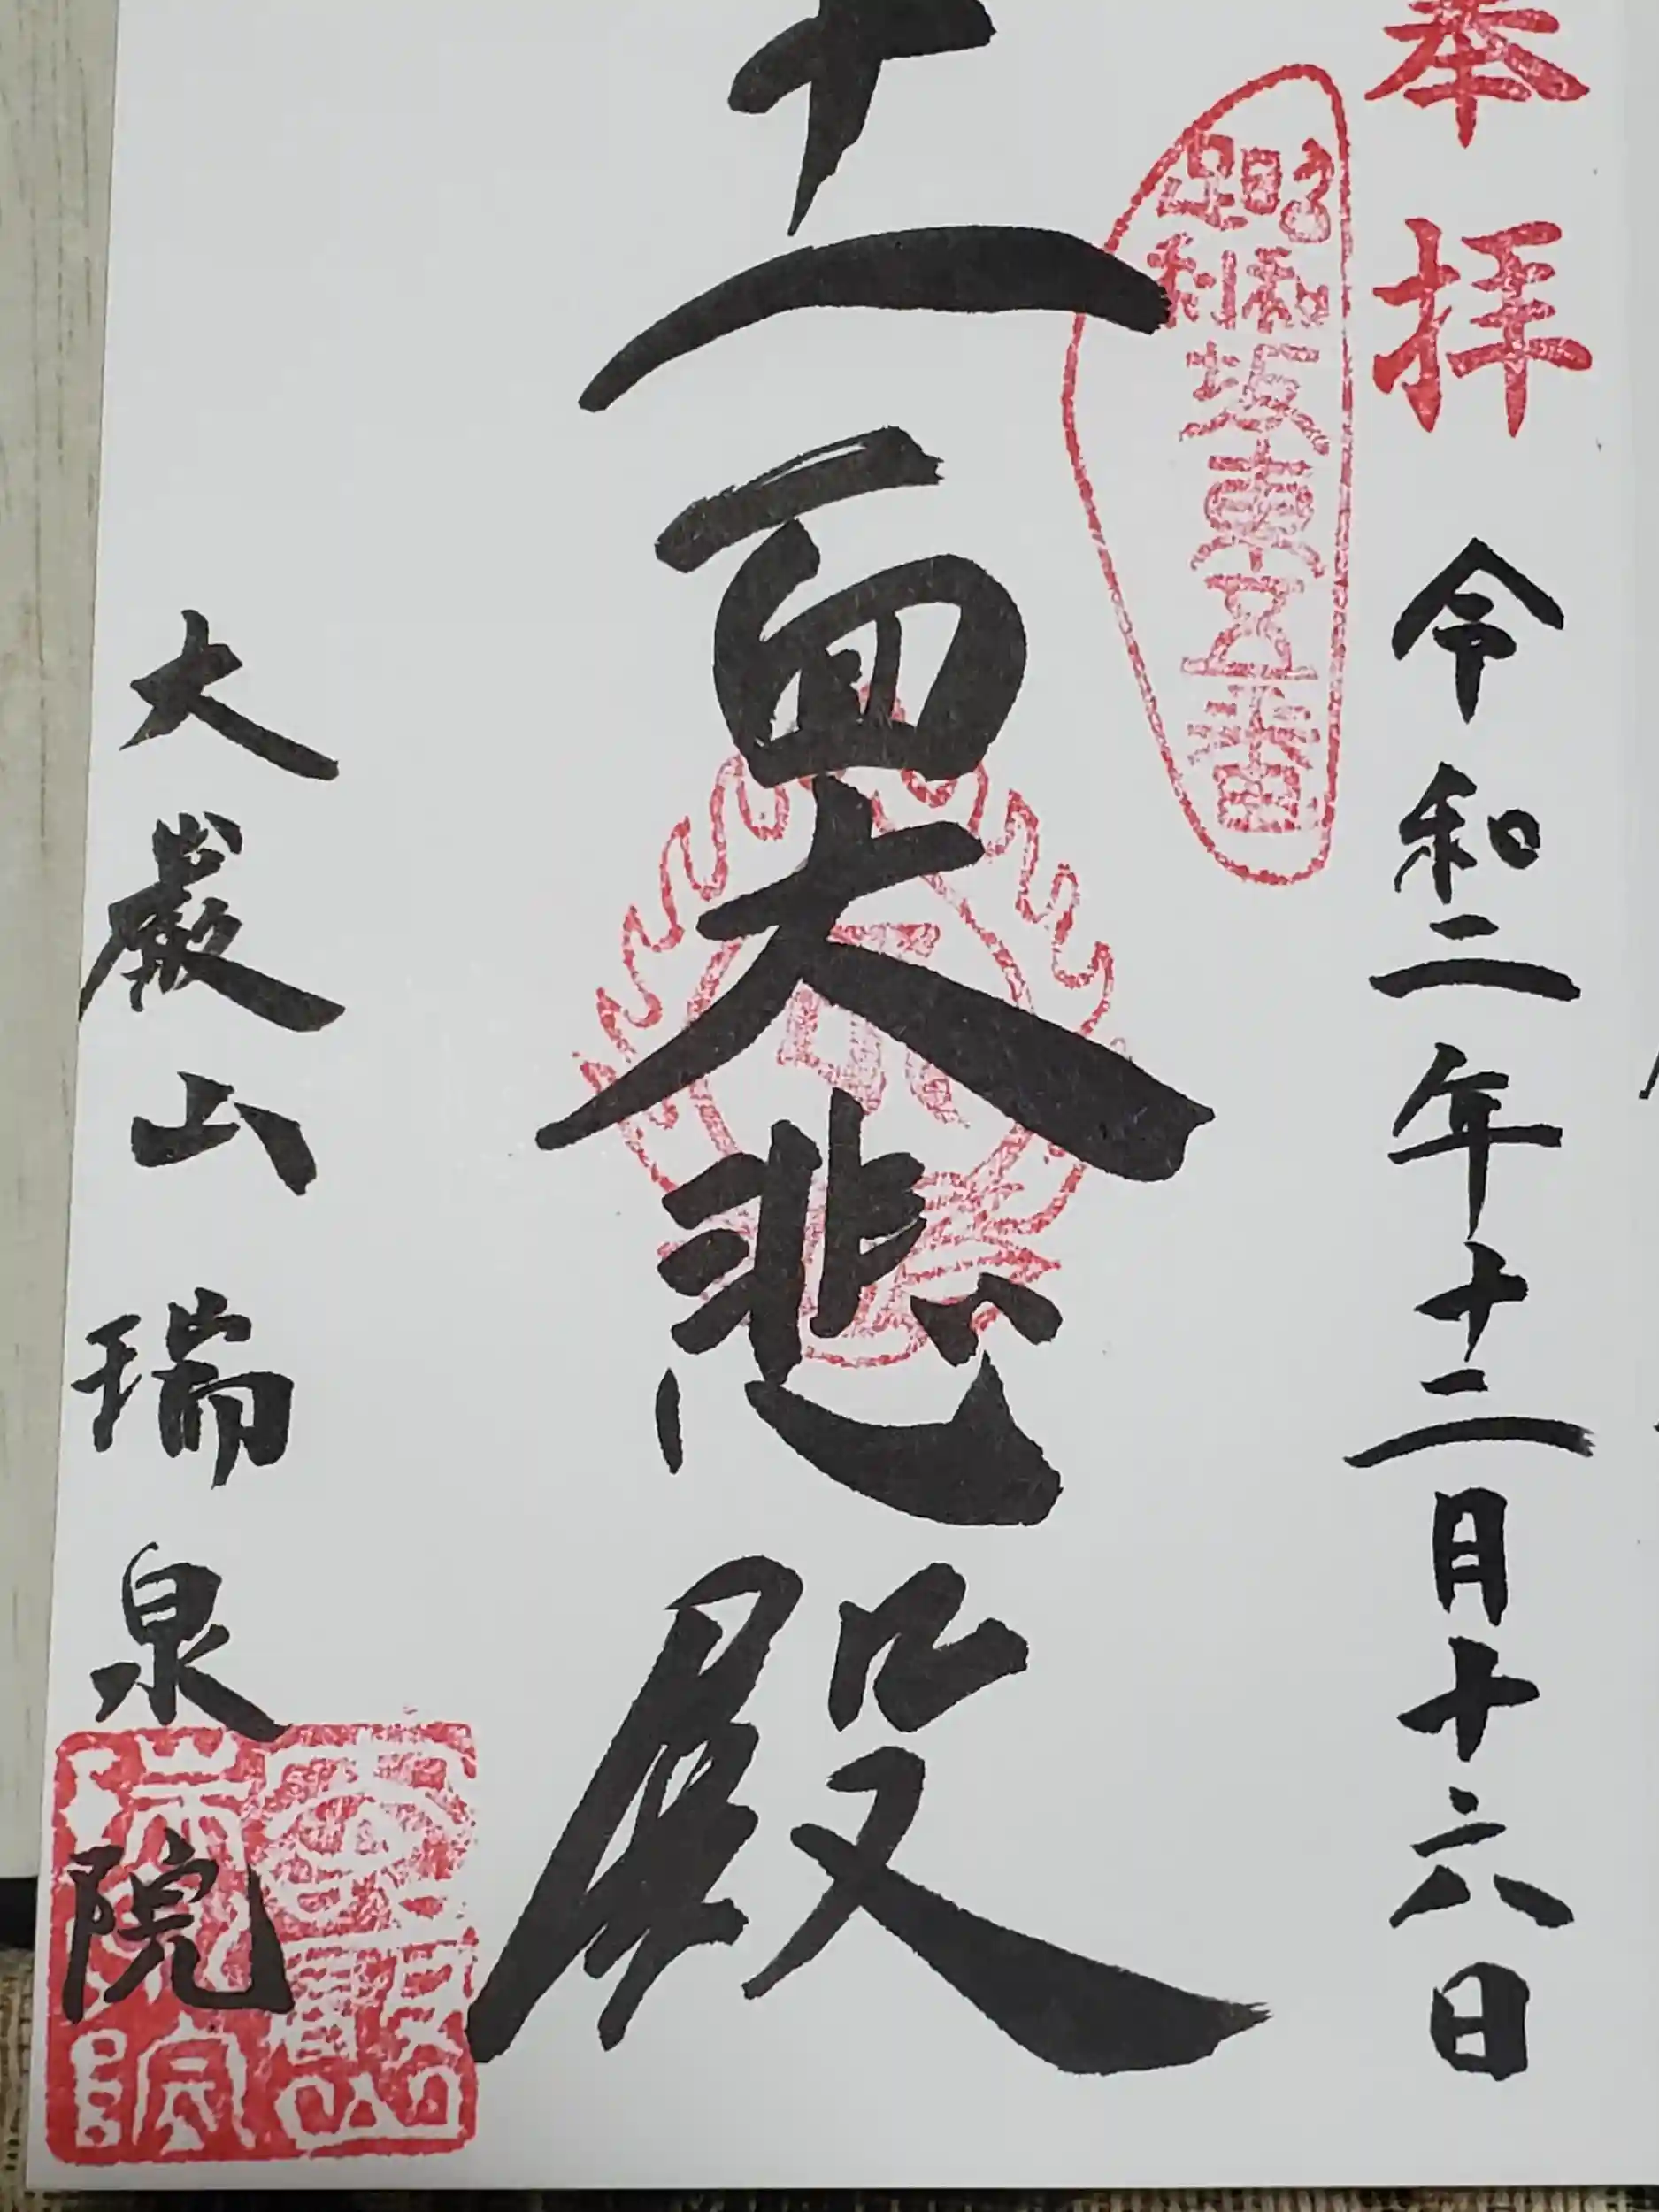 奉拝
令和二年十二月十六日
昭和
足利坂東五番
十一面大悲殿
大巖山瑞泉院